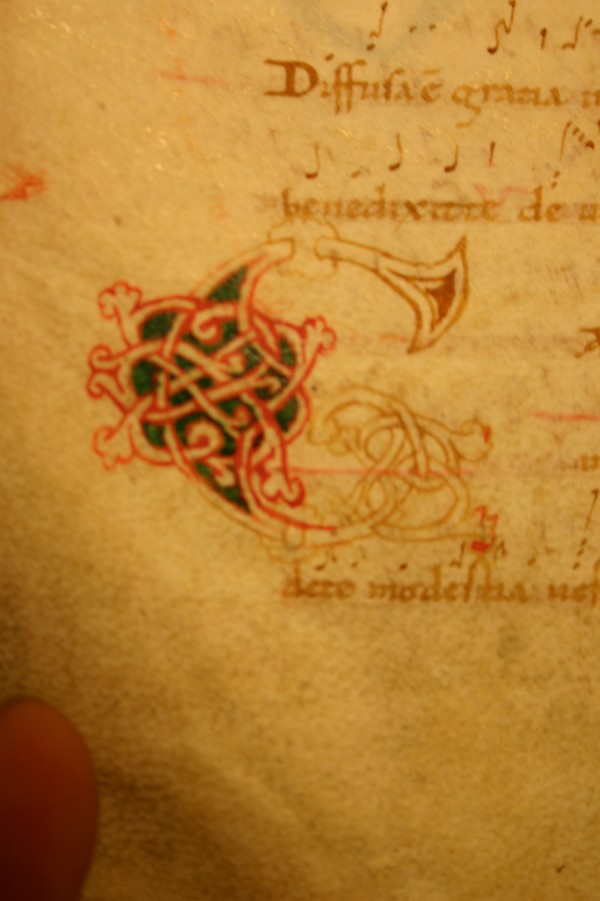 Diffusa ē gratia in
benedixit te de
G
dete modestia ues